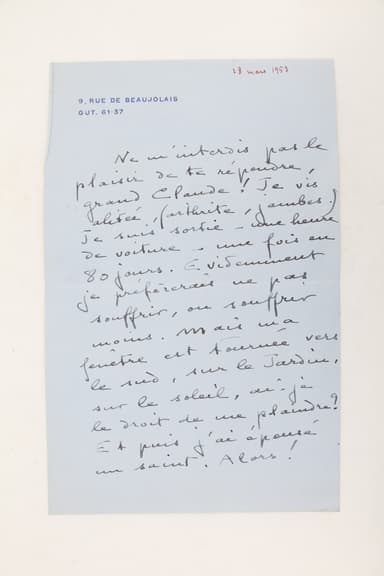 28 mars 1953
9, RUE DE BEAUJOLAIS
GUT. 61-37
Ne m'interdis pas le
plaisir de te répondre,
grand Claude ! Je vis
alitée, (arthrite, jambes.)
Je suis sortie - une heure
de voiture - une fois en
80 jours. Evidemment
je préfèrerais ne pas
souffrir, ou souffrir
moins. Mais ma
fenêtre est tournée vers
le sud, sur le Jardin,
sur le soleil, ai-je
le droit de me plaindre ?
Et puis j'ai épousé
un saint. Alors !